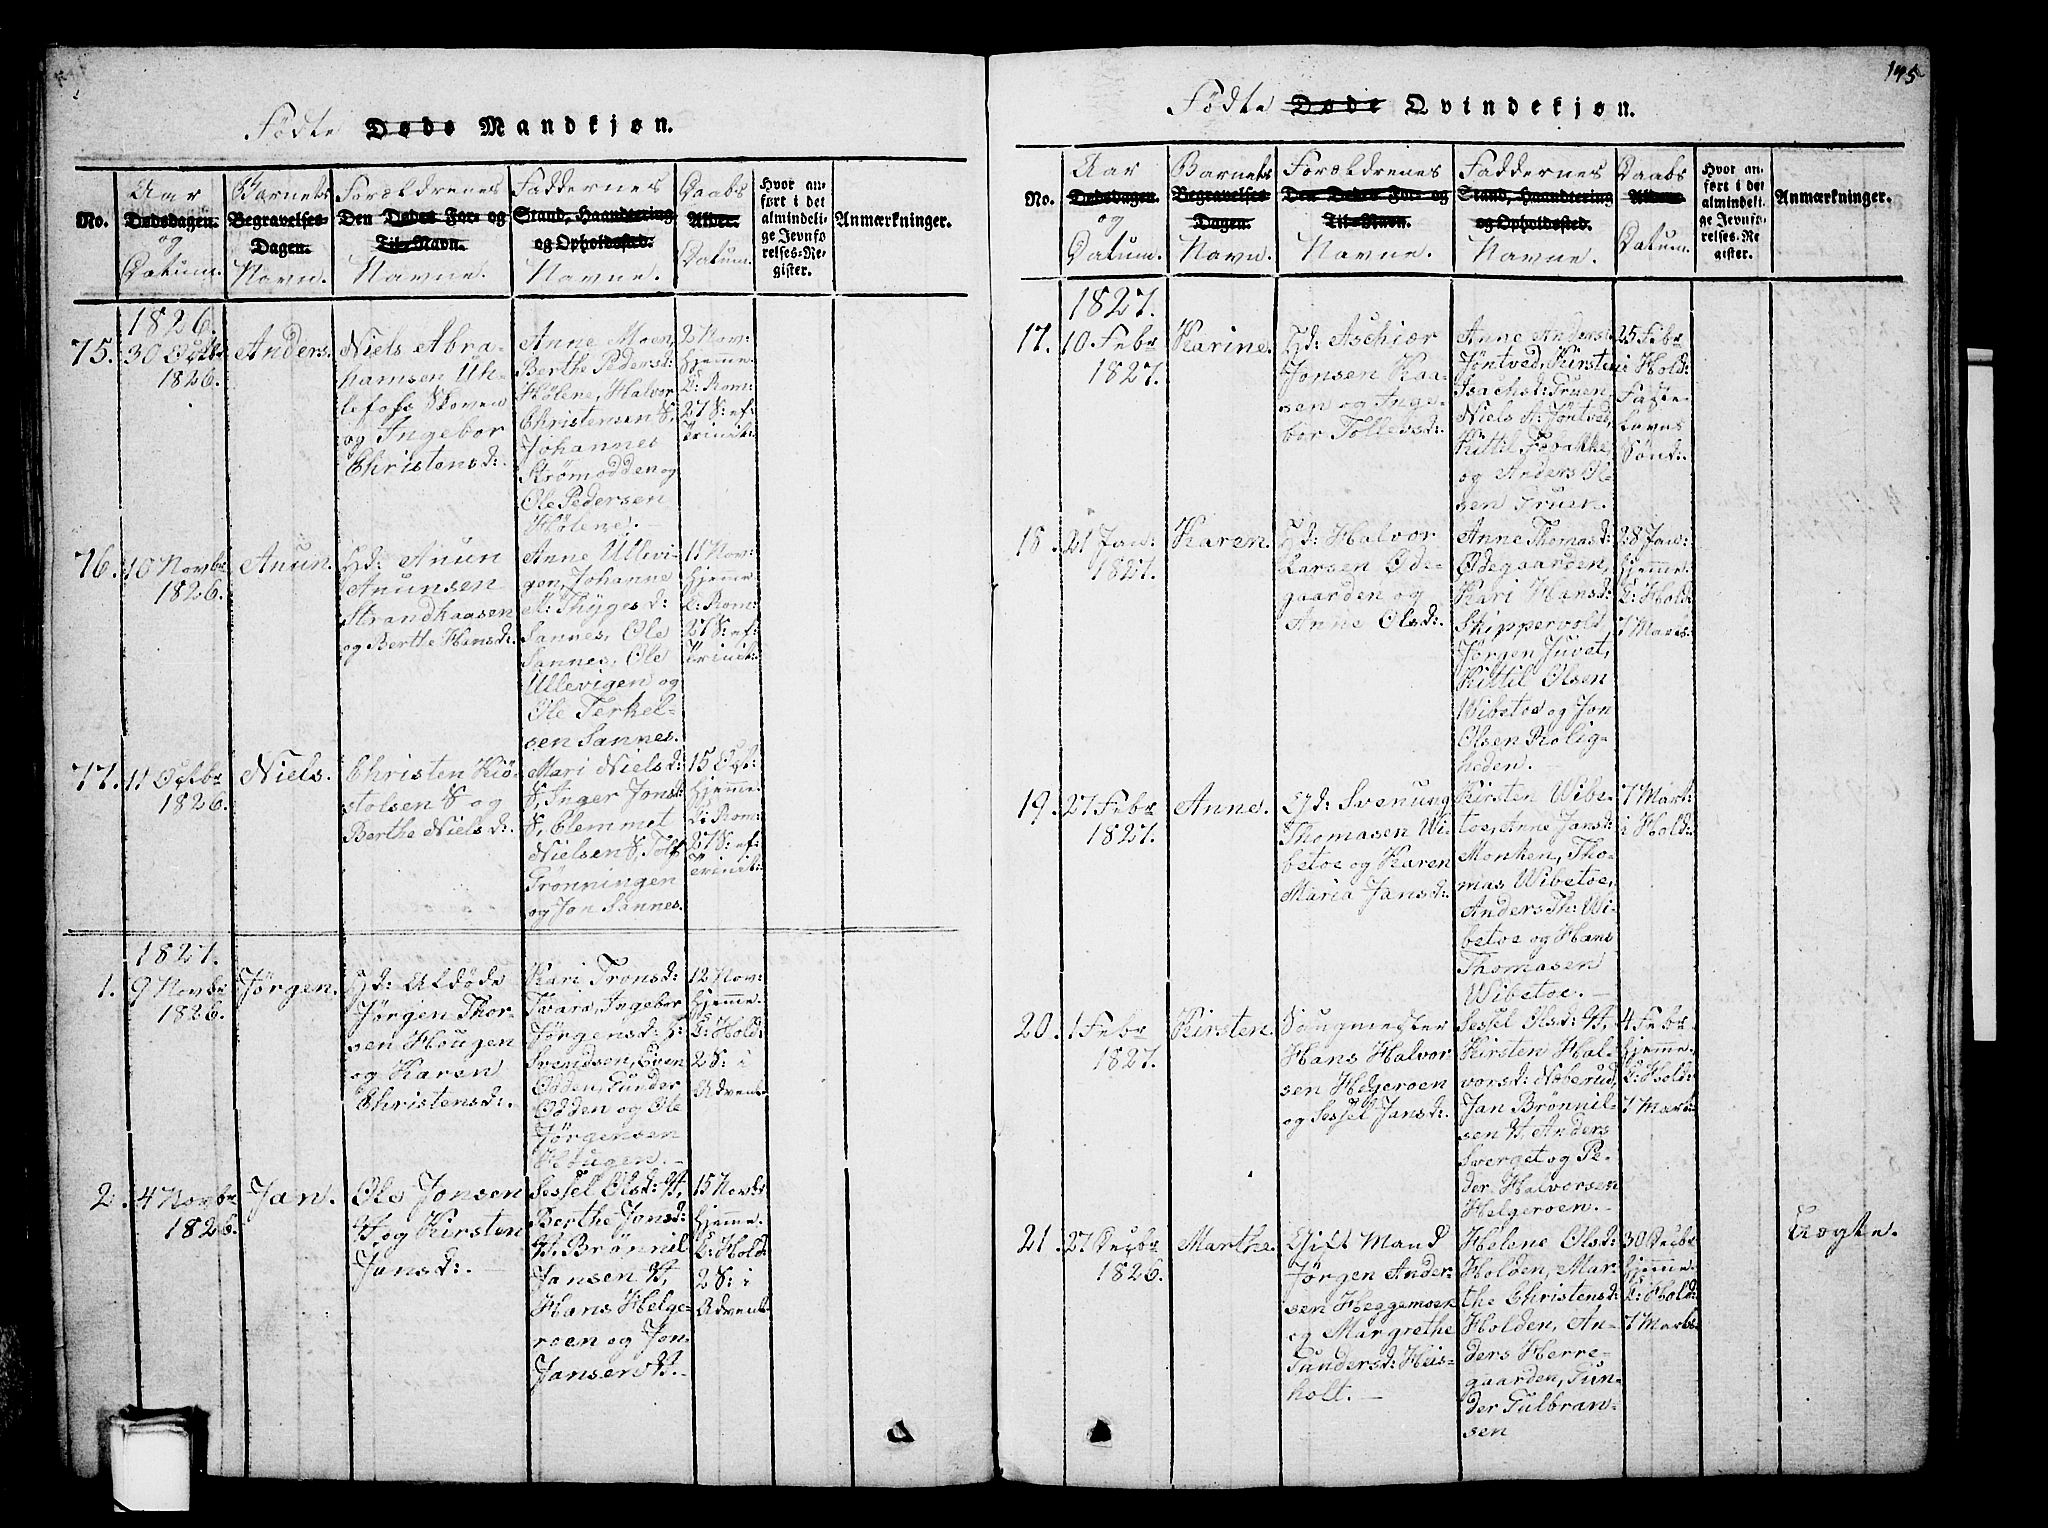 Fødte Døde Mandkjøn.
No.
Aar
Dødsdagen.
og
Datum.
Barnets
Begravelses-
Dagen.
Navn.
Forældrenes
Den Dødes For- og
Til-Navn.
Navne.
Faddernes
Stand, Haandtering
og Opholdssted.
Navne.
Daabs
Alder.
Datum.
Hvor an-
ført i det
almindeli-
ge Jevnfø
relses-Re-
gister.
Anmærkninger.
1826.
75.
30 Octbr
1826.
Anders.
Niels Abra-
hamsen Uh-
lefohs Skoven
og Ingebor
Christensd:
Anne Moen,
Berthe Pedersd:
Hølene, Halvor
Christensen S,
Johannes
Strømodden og
Ole Pedersen
Hølene.
2 Nov:
hjemme
C: Rom:
27 S: ef:
Trinit:
76.
10 Novbr
1826.
Anun.
Hd: Anun
Anunsen
Strandkaasen
og Berthe Hansd:
Anne Ullevi-
gen, Johanne
M: Thygesd:
Sannes, Ole
Sannes, Ole
Ullevigen og
Ole Terkel-
sen Sannes.
11 Nov:
hjemme
C: Rom:
27 S: ef:
Trinit:
77.
11 Octbr
1826.
Niels.
Christen Kiø-
stolsen S og
Berthe Nielsd:
Mari Nielsd:
S, Inger Jonsd:
S, Clemmet
Nielsen S, Tolf
Grønningen
og Jon Sannes.
15 Oct:
hjemme
C: Rom:
27 S: ef:
Trinit:
1827.
1.
9 Novbr
1826.
Jørgen.
Hd: Afdøde
Jørgen Thor-
sen Hougen
og Karen
Christensd:
Kari Tronsd:
Tvara, Ingebor
Jørgensd: H:
Svendsen, Even
Odden, Gunder
Odden og Ole
Jørgensen
Hougen.
12 Nov:
hjemme
C: Hold:
2 S: i
Advent
2.
4 Novbr
1826.
Jan.
Ole Jonsen
H, og Kirsten
Jansd:
Sessel Olsd: H,
Berthe Jonsd:
H, Brønnil
Jansen H,
Hans Helge-
roen og Jon
Jansen H.
15 Novbr
hjemme
C: Hold:
2 S: i
Advent
145
Fødte Døde Qvindekjøn.
No.
Aar
Dødsdagen.
og
Datum.
Barnets
Begravelses
Dagen.
Navn.
Forældrenes
Den Dødes For- og
Til-Navn.
Navne.
Faddernes
Stand, Haandtering
og Opholdssted.
Navne.
Daabs
Alder.
Datum.
Hvor an-
ført i det
almindeli-
ge Jevnfø-
relses-Re
gister.
Anmærkninger.
1827.
17.
10 Febr
1827.
Karine.
Hd: Aschier
Jonsen Kaa-
sen og Inge-
bor Tollefsd:
Anne Andersd:
Jøntved, Kirsten
Isachsd: Truen,
Niels A: Jøntved,
Kittil
og Anders Ol-
sen Truen.
25 Febr
i Hold:
Faste-
lavns
Sønd:
18.
21 Jan:
1827.
Karen.
Hd: Halvor
Larsen Øde-
gaarden og
Anne Olsd:
Anne Thomasd:
Ødegaarden,
Kari Hansd:
Skippervold,
Jørgen Juvet,
Kittil Olsen
Wibetoe og Jon
Olsen Rolig-
heden.
28 Jan:
hjemme
C: Hold:
7 Marts
19.
27 Febr
1827.
Anne.
Gd: Svenung
Thomasen Wi-
betoe og Karen
Maria Jansd:
Kirsten Wibe-
toe, Anne Jansd:
Monken, Tho-
mas Wibetoe,
Anders Th: Wi-
betoe og Hans
Thomasen
Wibetoe.
7 Mart:
i Hold:
20.
1 Febr
1827.
Kirsten.
Saugmester
Hans Halvor
sen Helgeroen
og Sessel Jansd:
Sessel Olsd: H,
Kirsten Hal-
vorsd: Naberud,
Jan Brønnil-
sen H, Anders
Sverget og Pe-
der Halvorsen
Helgeroen.
4 Febr
hjemme
C: Hold:
7 Mart:
21.
27 Decbr
1826.
Marthe.
Gift Mand
Jørgen Ander-
sen Heggemoen
og Margrethe
Gundersd: Heis-
holt.
Helene Olsd:
Holden, Mar-
the Christensd:
Holden, An-
ders Herre-
gaarden, Gun-
der Gulbran-
sen
30 Decbr
hjemme
C: Hold:
7 Marts
Uægte.